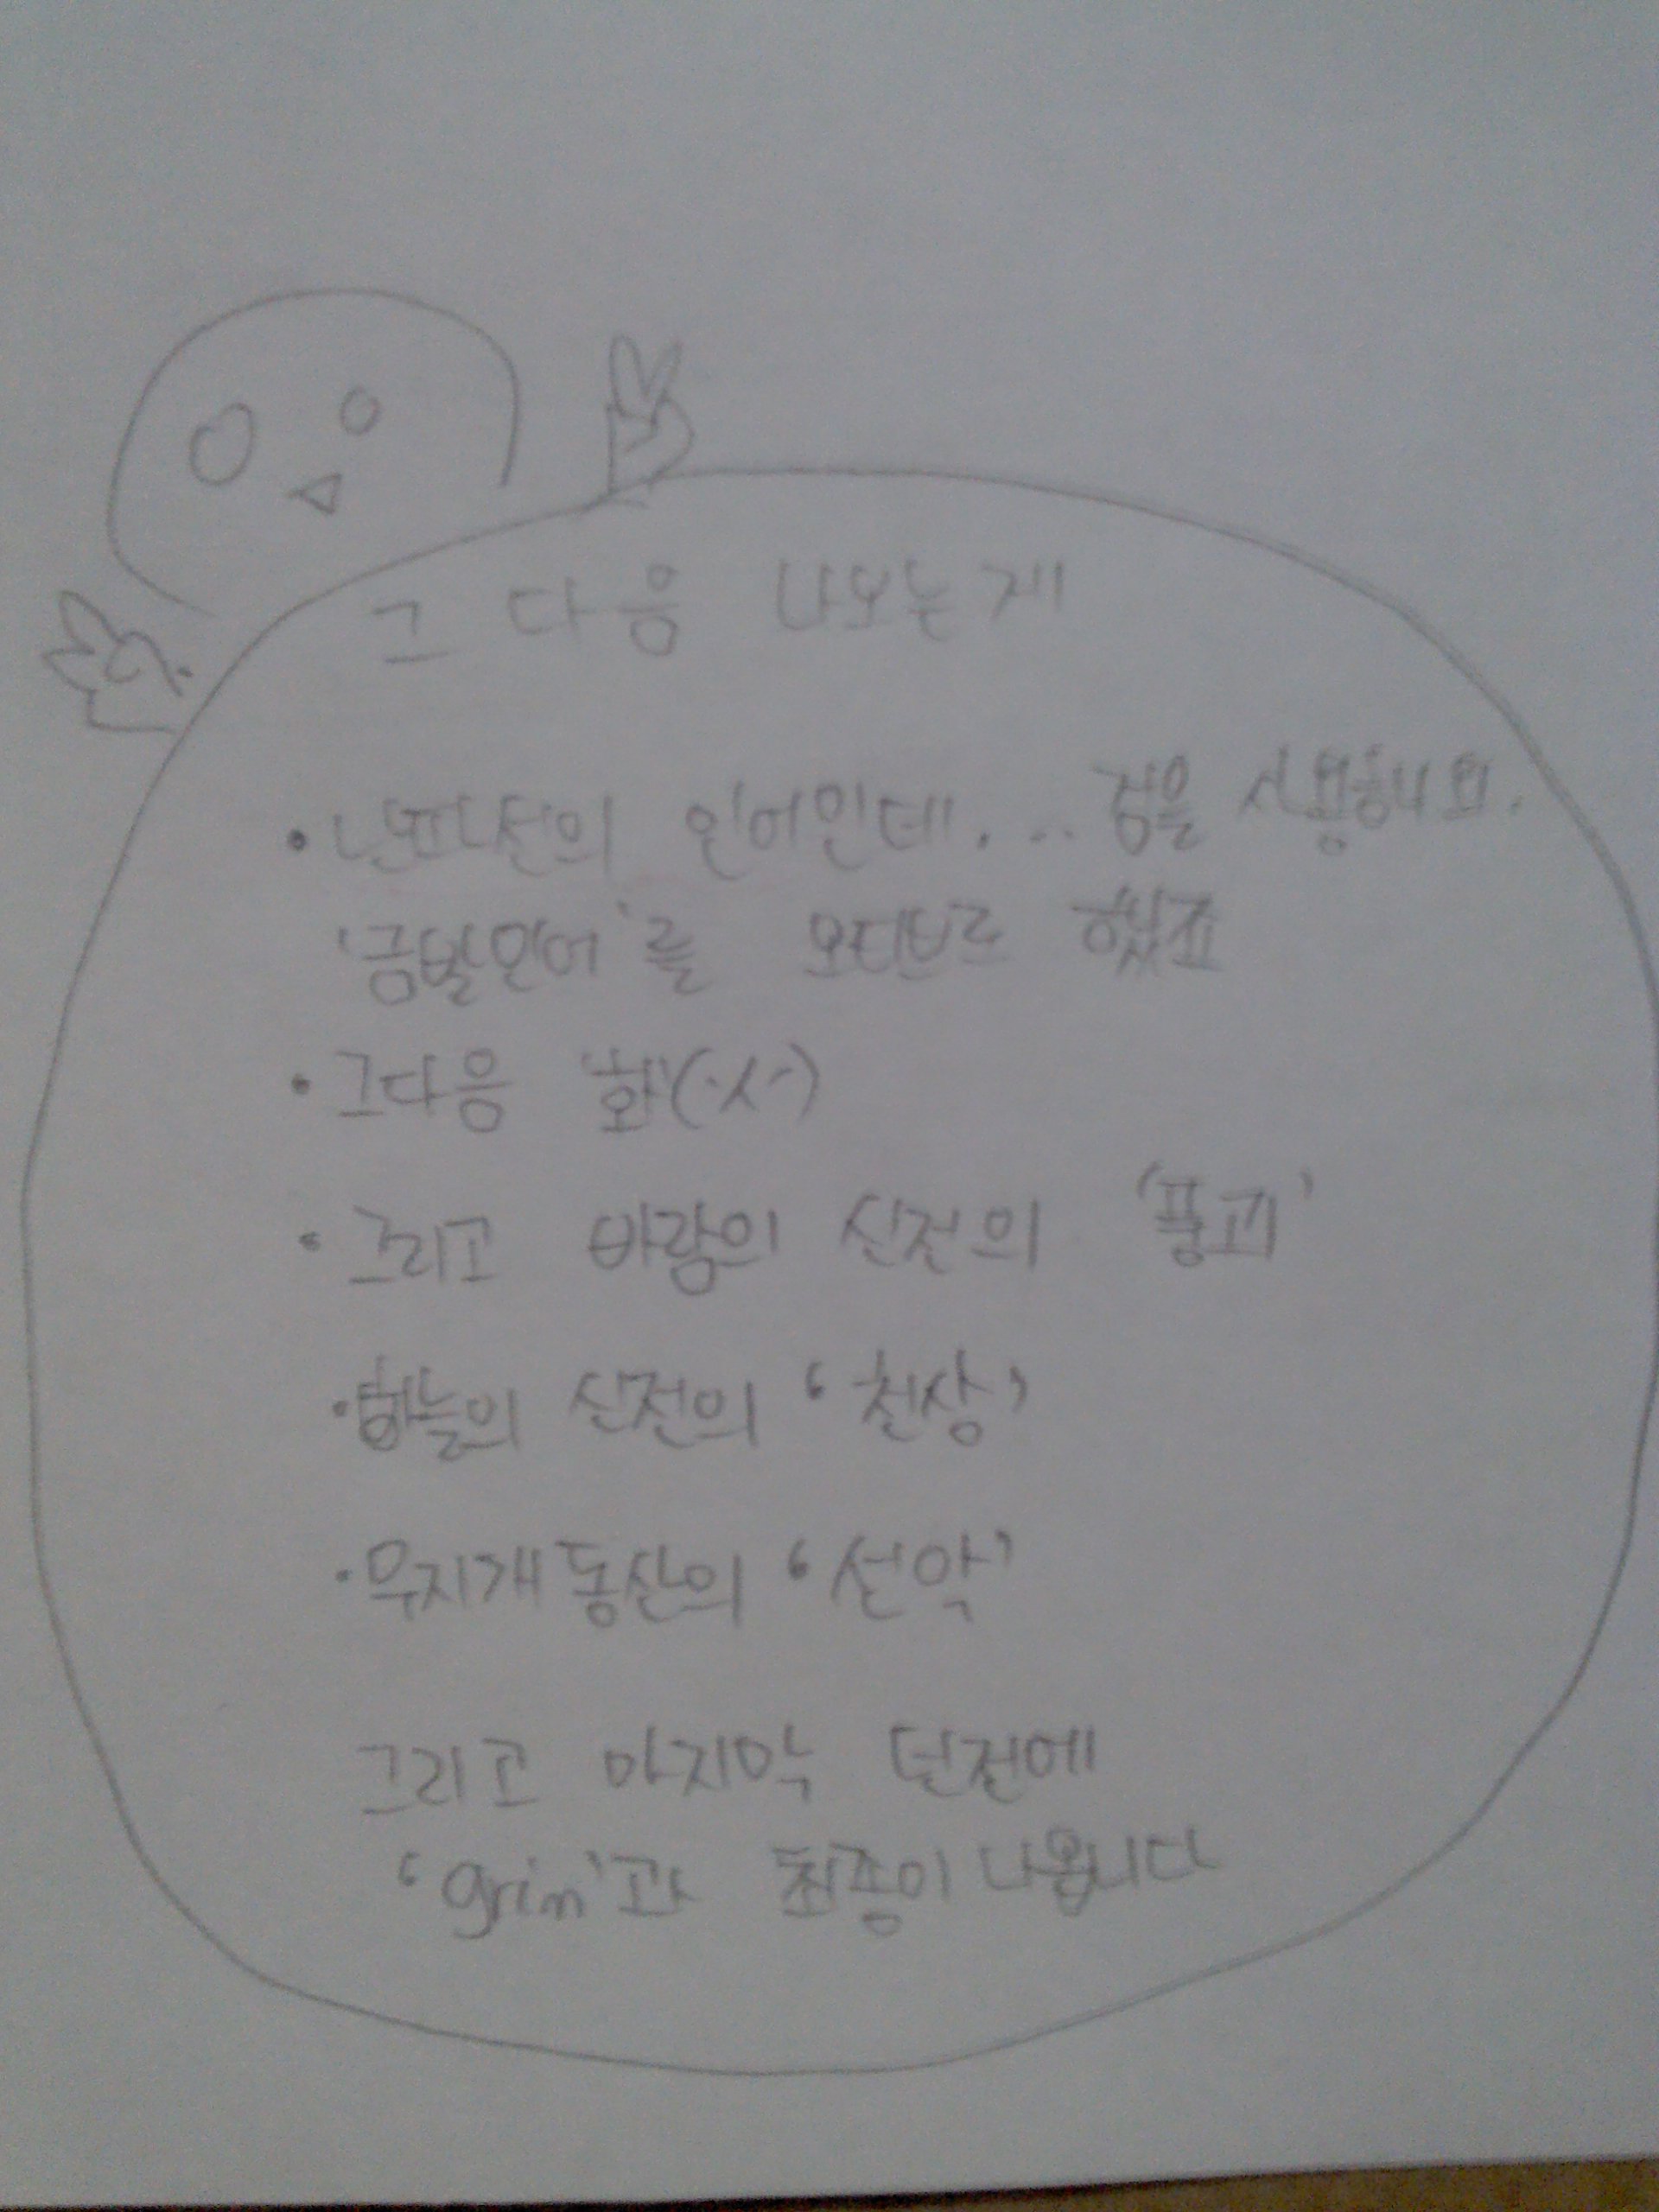 그 다음 나오는게
· 난파선의 인어인데. ... 검을 사용해요.
'금발인어'를 모티브로 했죠
· 그다음 '화'(·ㅅ·)
· 그리고 바람의 신전의 '풍괴'
· 하늘의 신전의 '천상'
· 무지개동산의 '선악'
그리고 마지막 던전에
'grim'과 최종이 나옵니다